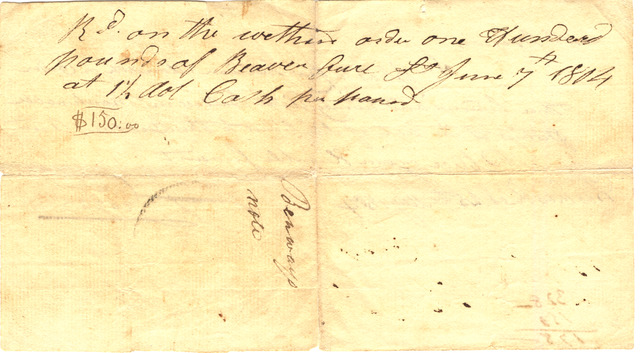 Rd. on the within order one Hunderd
pounds of Beaver fur June 7th 1804
at 1½ dol Cash per pound
$150:00
Benways
note